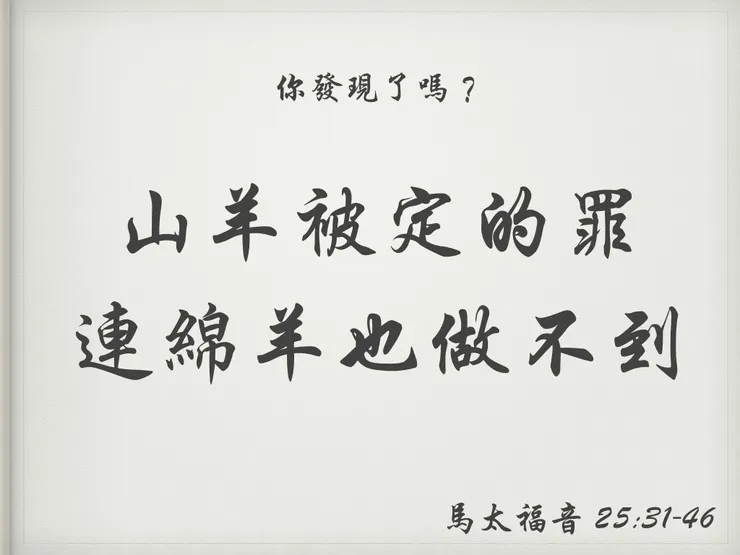 你發現了嗎？
山羊被定的罪
連綿羊也做不到
馬太福音 25:31-46